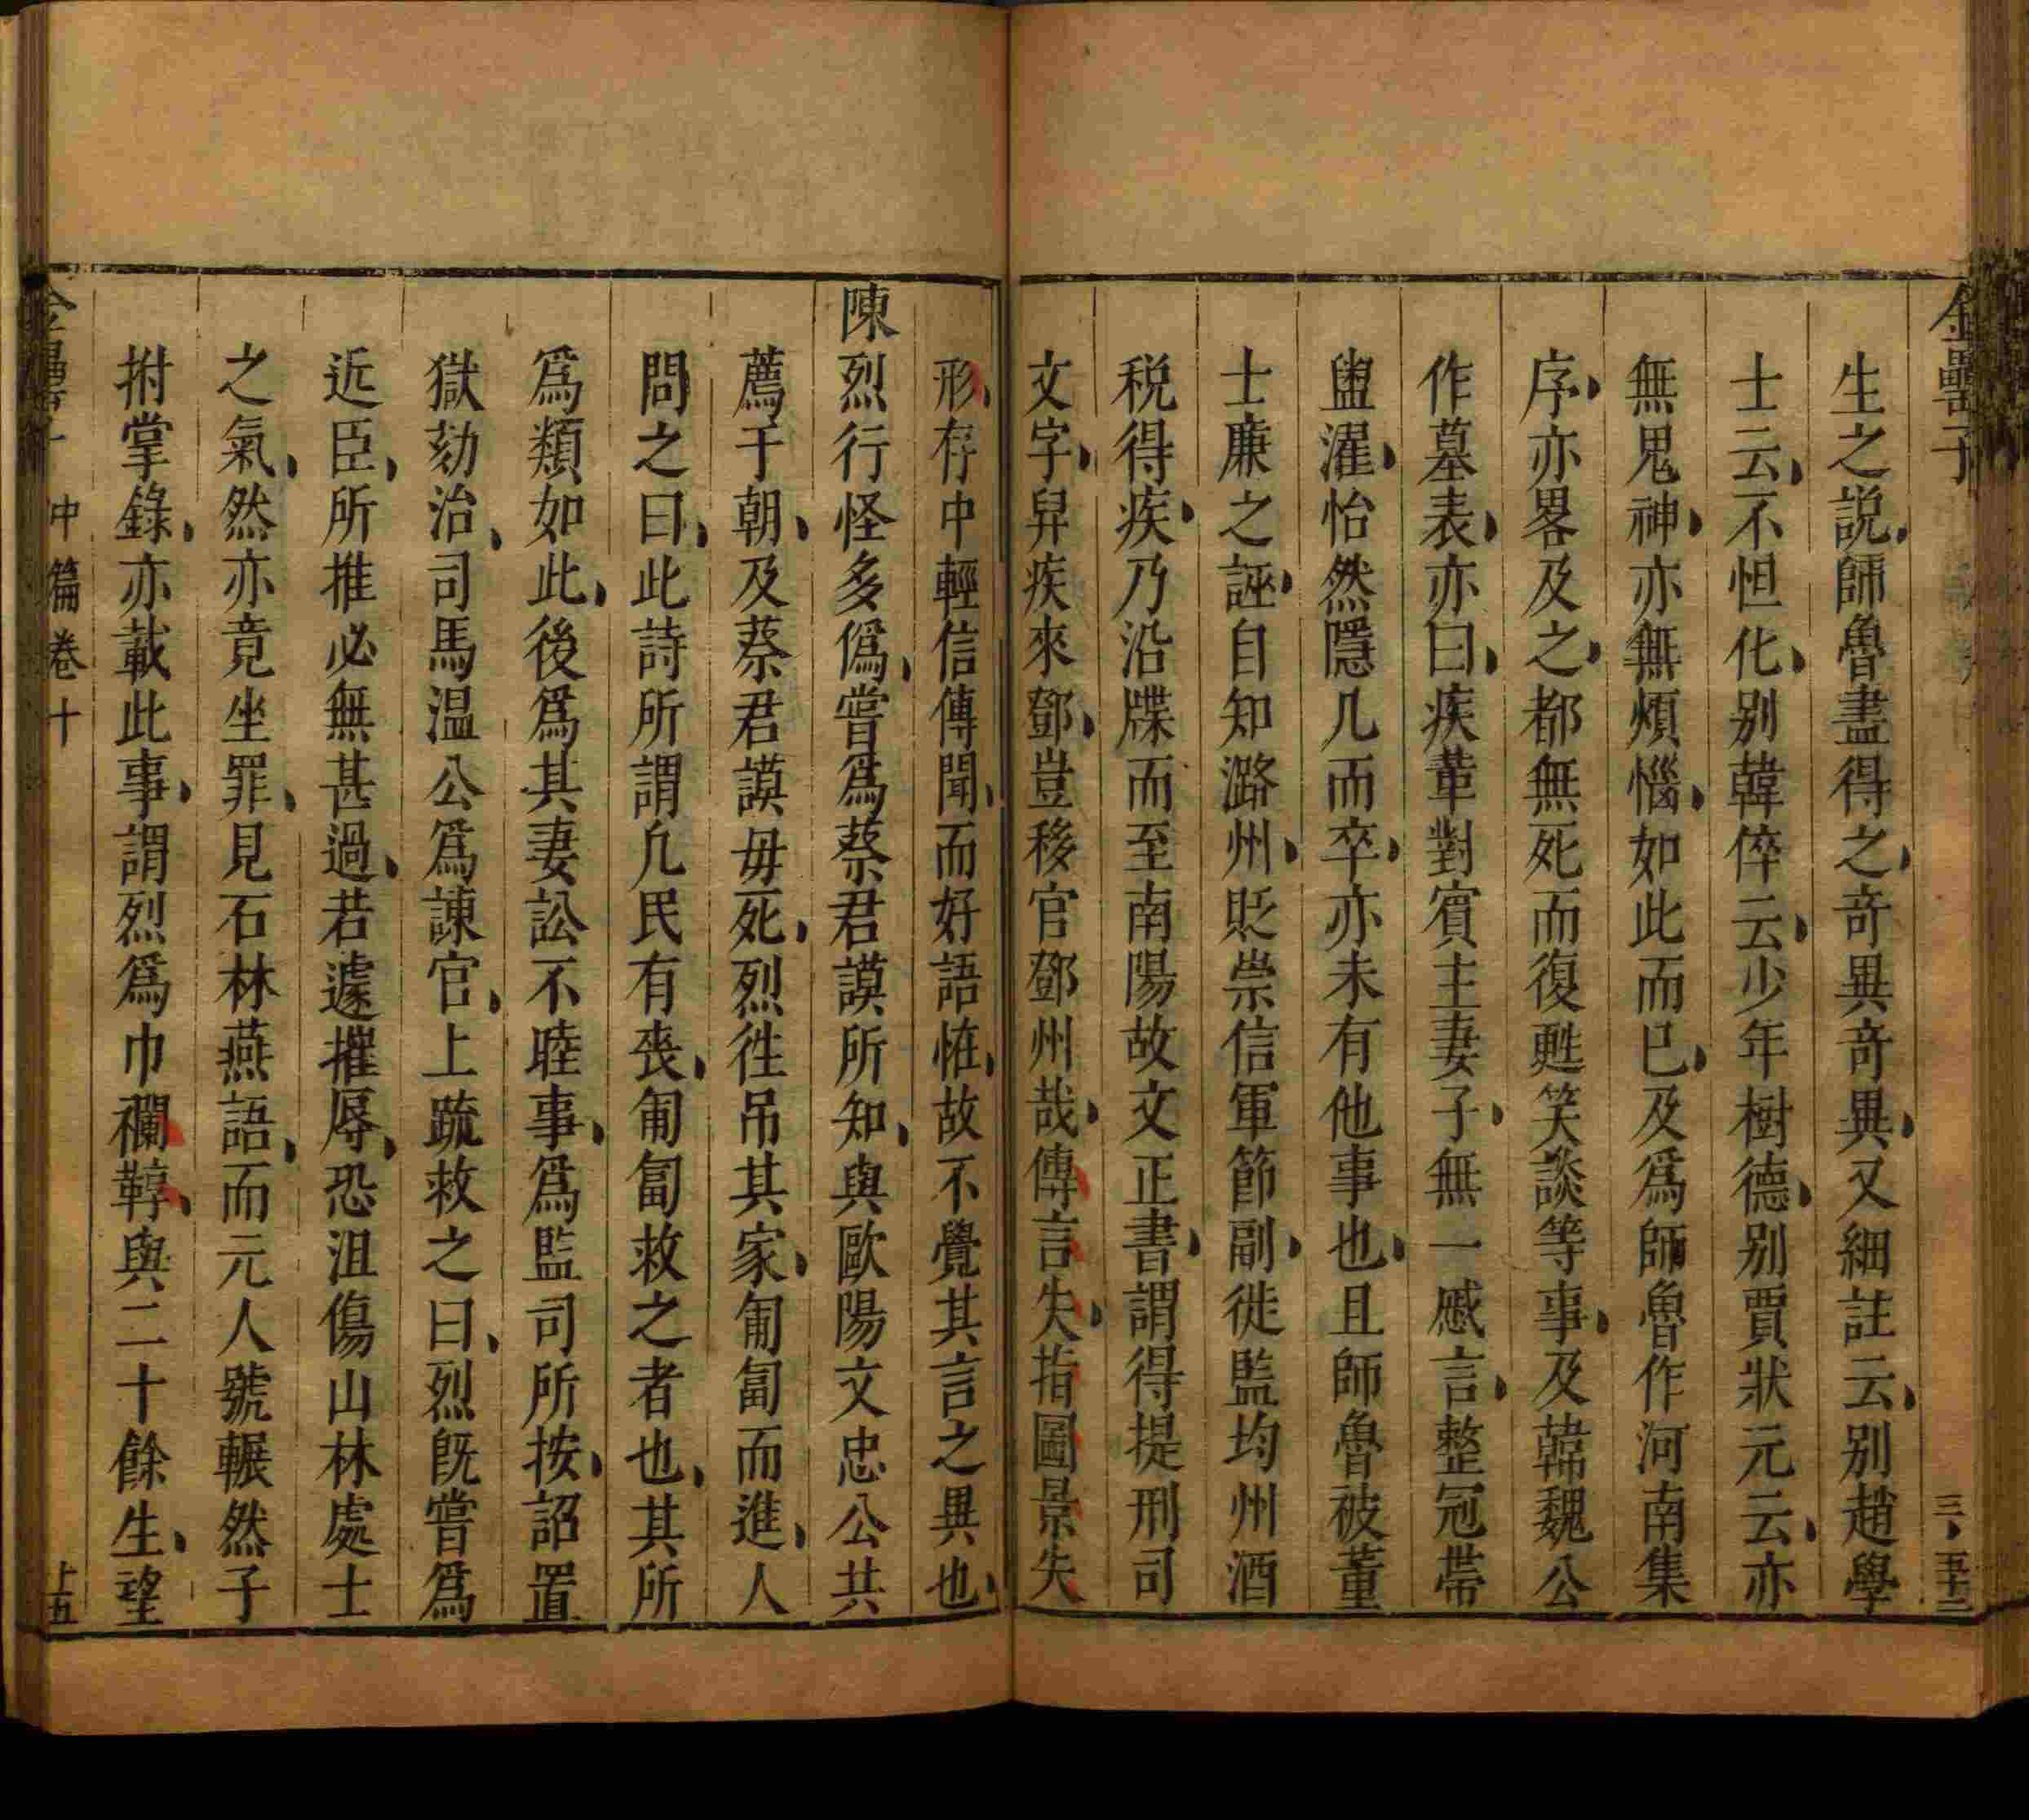 金罍子
生之説師魯盡得之奇異奇異又細註云别趙學
士云不怛化别韓倅云少年樹德别賈狀元云亦
無鬼神亦無煩惱如此而已及爲師魯作河南集
序亦畧及之都無死而復甦笑談等事及韓魏公
作墓表亦曰疾革對賓主妻子無一慼言整冠帶
盥濯怡然隱几而卒亦未有他事也且師魯被董
士廉之誣自知潞州貶崇信軍節副徙監均州酒
税得疾乃沿牒而至南陽故文正書謂得提刑司
文字舁疾來鄧豈移官鄧州哉傳言失指圖景失
形存中輕信傳聞而好語恠故不覺其言之異也
陳烈行怪多僞嘗爲蔡君謨所知與歐陽文忠公共
薦于朝及蔡君謨毋死烈徃吊其家匍匐而進人
問之曰此詩所謂凢民有喪匍匐救之者也其所
爲類如此後爲其妻訟不睦事爲監司所按詔置
獄劾治司馬温公爲諫官上疏救之曰烈旣嘗爲
近臣所推必無甚過若遽摧辱恐沮傷山林處士
之氣然亦竟坐罪見石林燕語而元人號輾然子
拊掌錄亦載此事謂烈爲巾襴鞟與二十餘生望
中篇卷十
十五